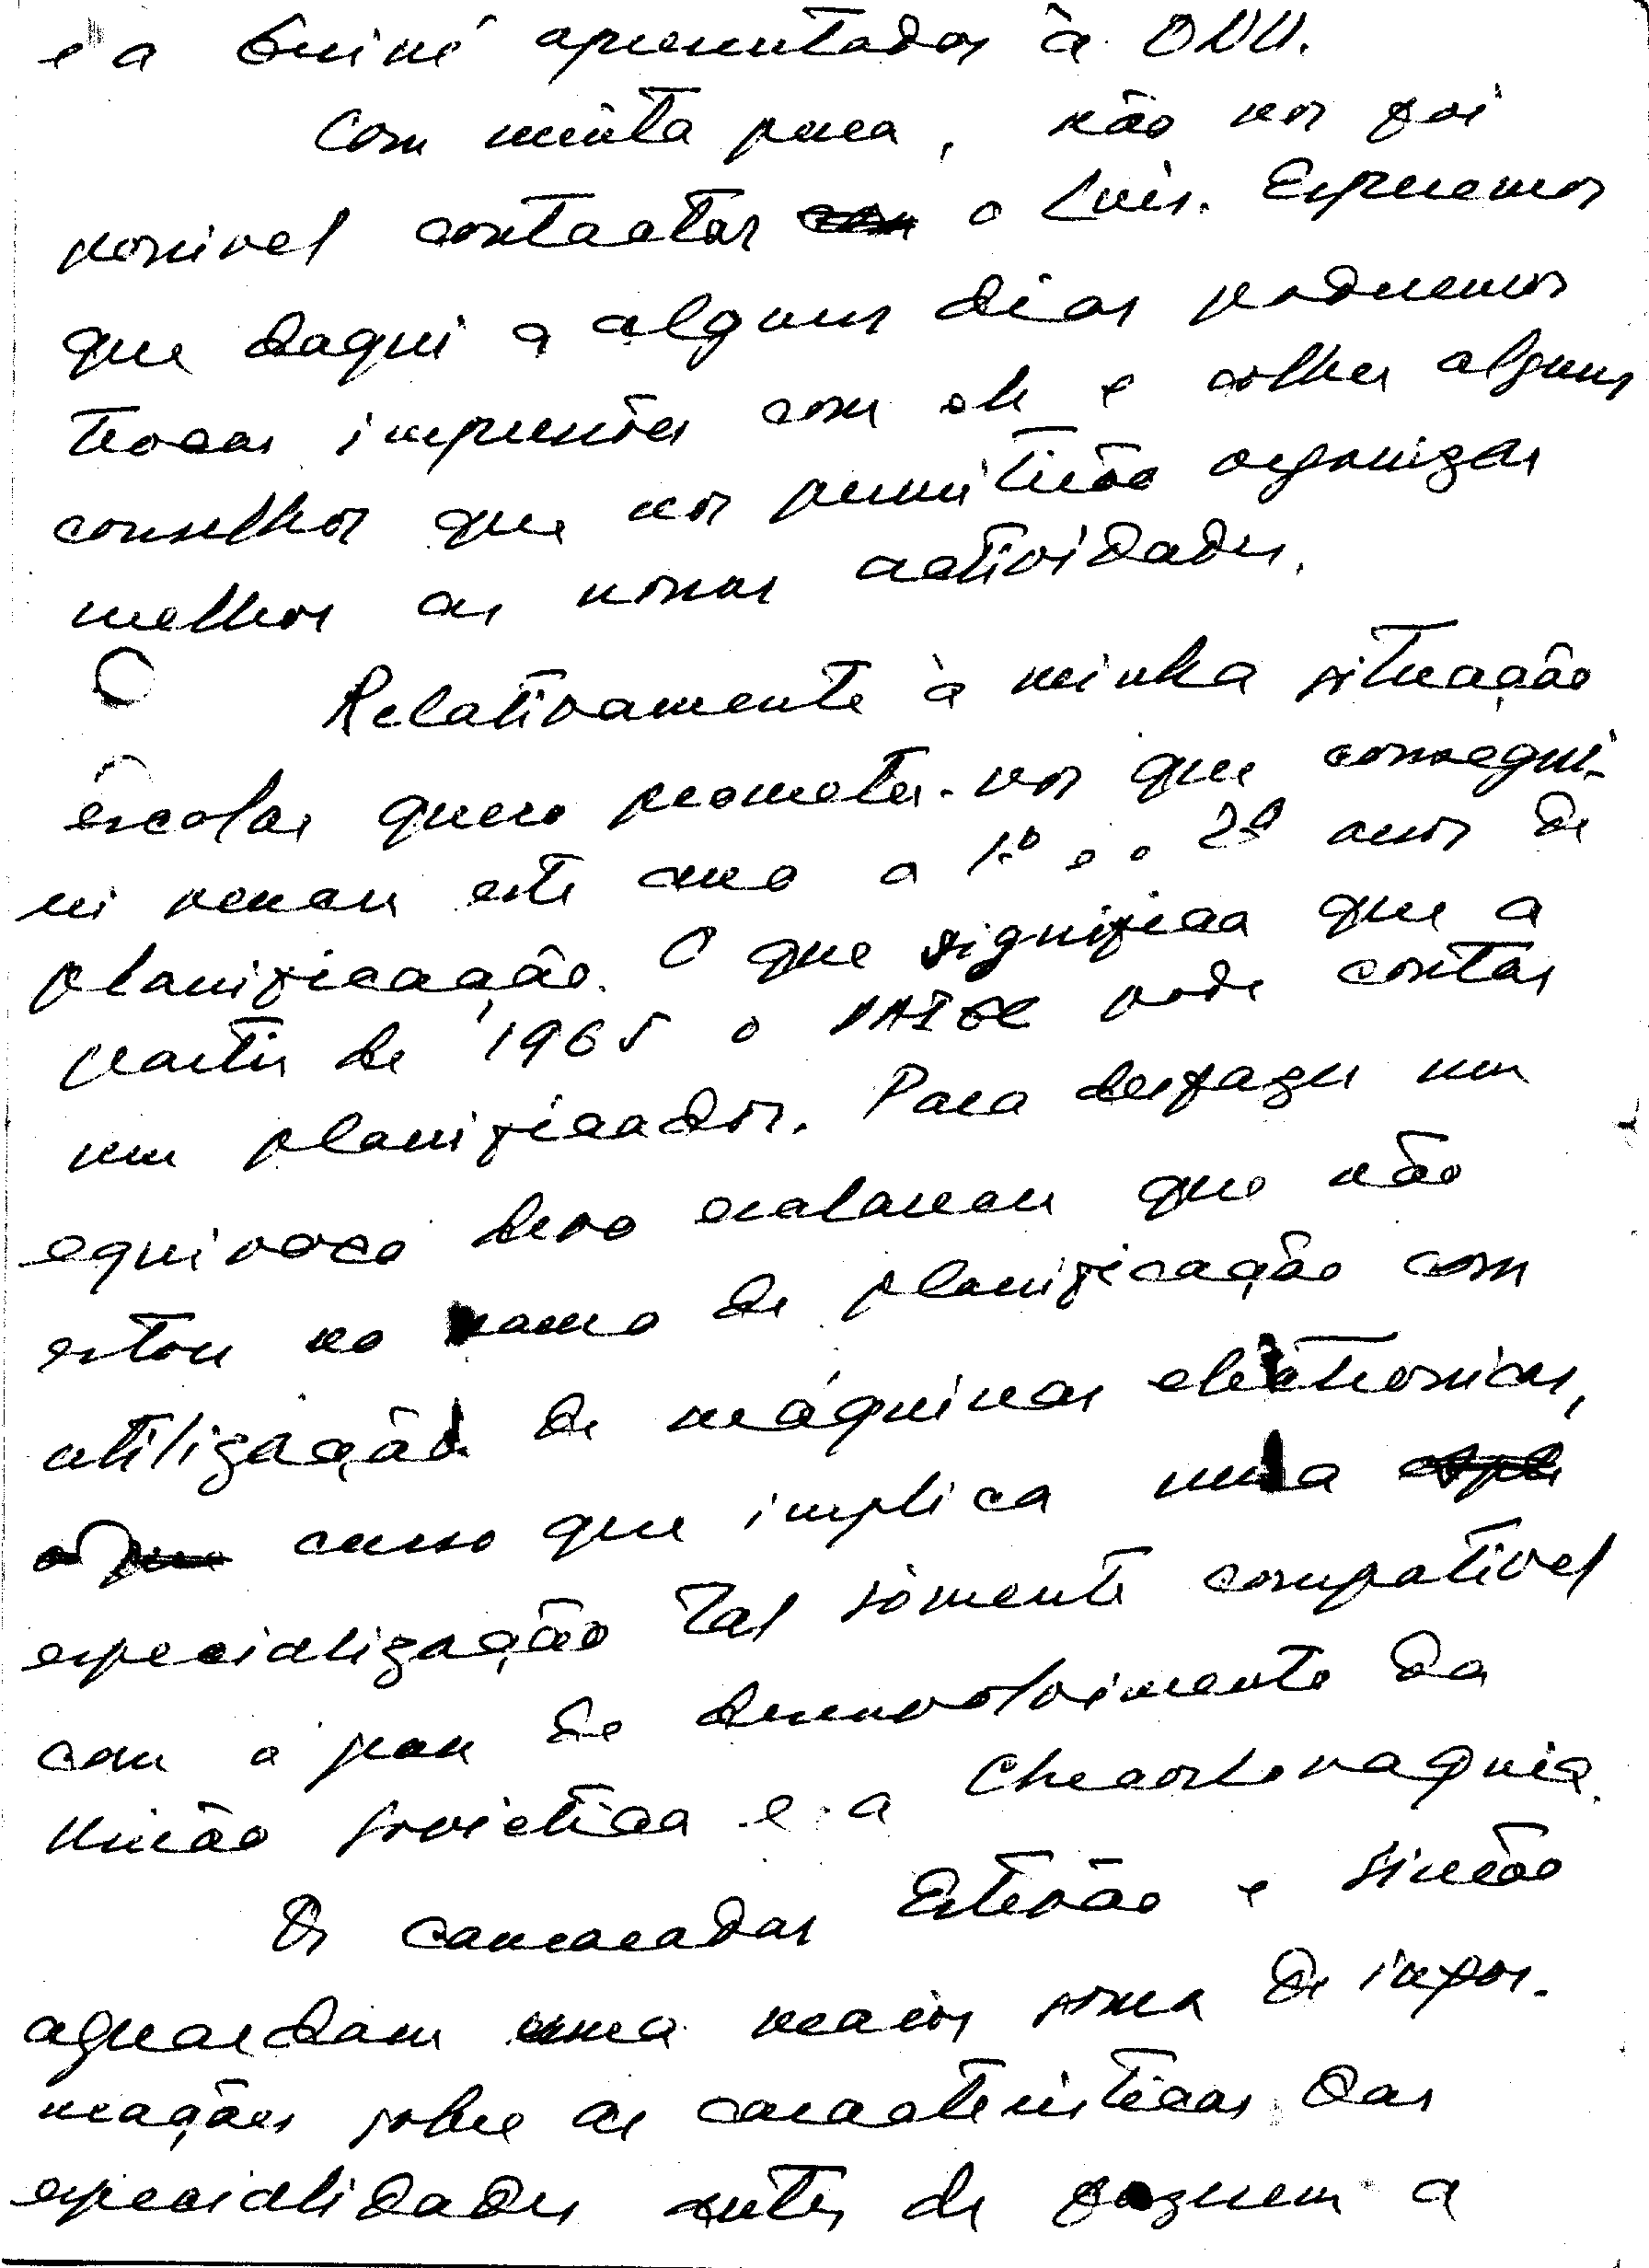 e a Guiné apresentados à ONU.
Com muita pena, não nos foi
possivel contactar com o Luís. Esperemos
que daqui a alguns dias poderemos
trocar impressões com ele e colher alguns
conselhos que nos permitirão organizar
melhor as nossas actividades.
Relativamente à minha situação
escolar quero prometer-vos que consegui-
rei vencer este ano o 1.º e o 2º anos de
planificação. O que significa que a
partir de 1965 o PAIGC pode contar
um planificador. Para desfazer um
equivoco devo esclarecer que não
estou no ramo de planificação com
utilização de máquinas electronicas,
o que curso que implica uma
especialização tal sòmente compativel
com o grau de desenvolvimento da
União Sovietica e a Checoslovaquia.
Os camaradas Estevão e Simão
aguardam uma maior soma de infor-
mações sobre as caracteristicas das
especialidades antes de fazerem a